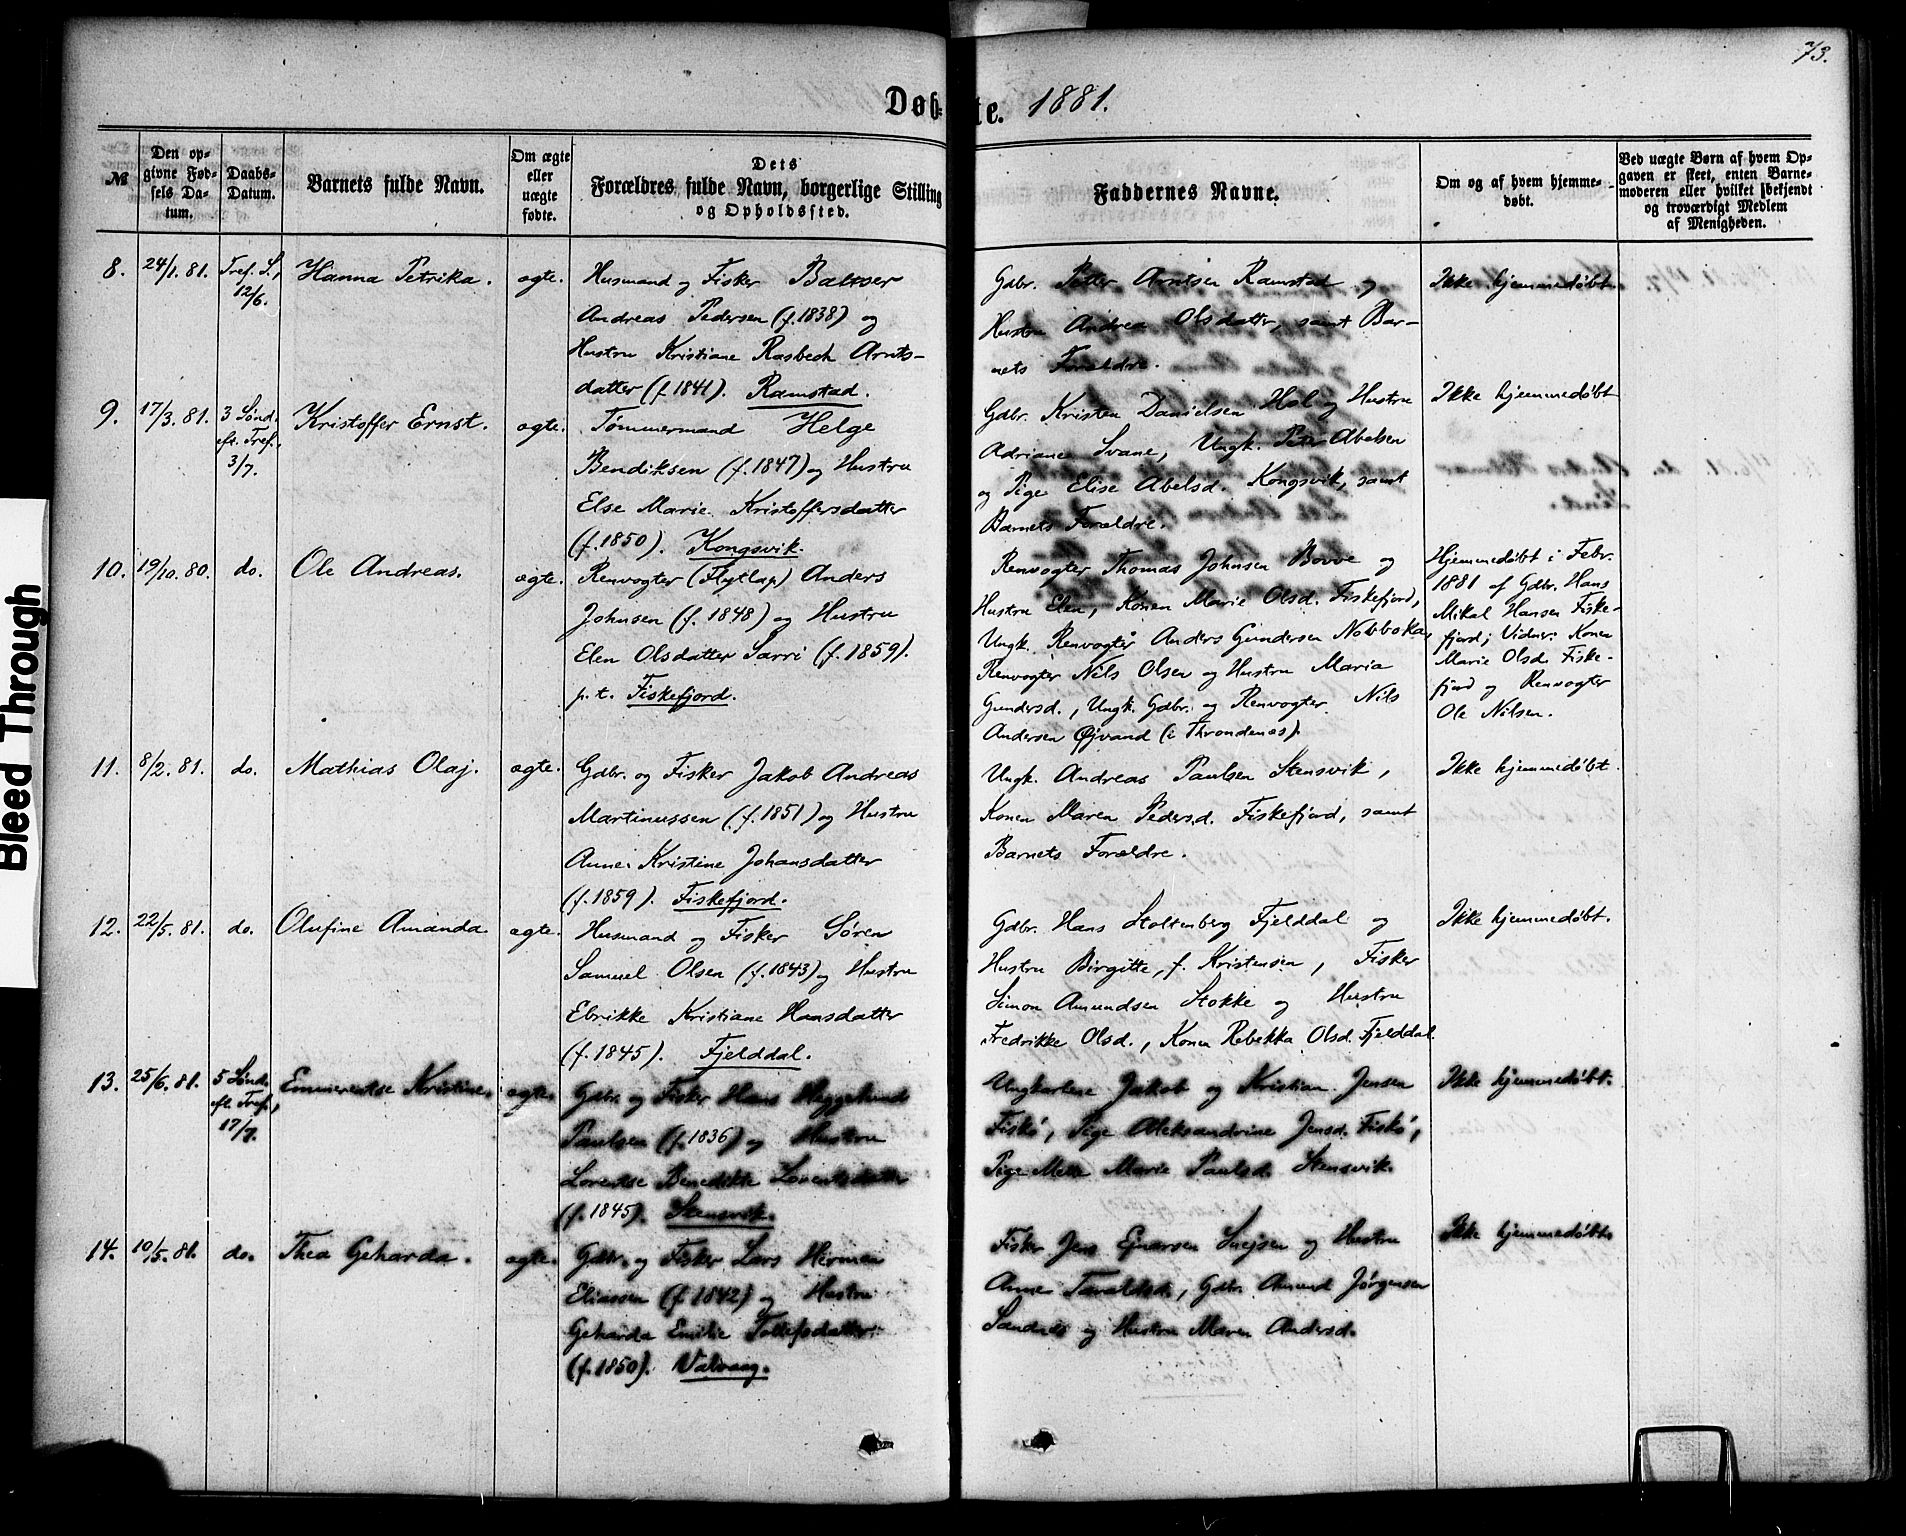 73.
Døb-te. 1881.
№
Den op-
givne Fød-
sels Da-
tum.
Daabs-
Datum.
Barnets fulde Navn.
Om ægte
eller
uægte
fødte.
Dets
Forældres fulde Navn, borgerlige Stilling
og Opholdssted.
Faddernes Navne.
Om og af hvem hjemme-
døbt.
Ved uægte Børn af hvem Op-
gaven er skeet, enten Barne-
moderen eller hvilket bekjendt
og troværdigt Medlem
af Menigheden.
8.
24/1. 81.
Tref. S.,
12/6.
Hanna Petrika.
ægte.
Husmand og Fisker Baltser
Andreas Pedersen (f. 1838) og
Hustru Kristiane Rasbech Arnts-
datter (f. 1841). Ramstad.
Gdbr. Petter Arntsen Ramstad og
Hustru Andrea Olsdatter, samt Bar-
nets Forældre.
Ikke hjemmedøbt.
9.
17/3. 81.
3 Sønd.
eft. Tref.,
3/7.
Kristoffer Ernst.
ægte.
Tømmermand Helge
Bendiksen (f. 1847) og Hustru
Else Marie Kristoffersdatter
(f. 1850). Kongsvik.
Gdbr. Kristen Danielsen Hol og Hustru
Adriane Svane, Ungk. Peter Abelsen
og Pige Elise Abelsd. Kongsvik, samt
Barnets Forældre.
Ikke hjemmedøbt.
10.
19/10. 80.
do.
Ole Andreas.
ægte.
Renvogter (Flytlap) Anders
Johnsen (f. 1848) og Hustru
Elen Olsdatter Sarri (f. 1859).
p. t. Fiskefjord.
Renvogter Thomas Johnsen Bovve og
Hustru Elen, Konen Marie Olsd. Fiskefjord,
Ungk. Renvogter Anders Gundersen Nobboka,
Renvogter Nils Olsen og Hustru Maria
Gundersd., Ungk. Gdbr. og Renvogter Nils
Andersen Øjvand (i Throndenæs).
Hjemmedøbt i Febr.
1881 af Gdbr. Hans
Mikal Hansen Fiske-
fjord; Vidner: Konen
Marie Olsd. Fiske-
fjord og Renvogter
Ole Nilsen.
11.
8/2. 81.
do.
Mathias Olaj.
ægte.
Gdbr. og Fisker Jakob Andreas
Martinussen (f. 1851) og Hustru
Anne Kristine Johansdatter
(f. 1859). Fiskefjord.
Ungk. Andreas Paulsen Stensvik,
Konen Maren Pedersd. Fiskefjord, samt
Barnets Forældre.
Ikke hjemmedøbt.
12.
22/5. 81.
do.
Olufine Amanda.
ægte.
Husmand og Fisker Søren
Samuel Olsen (f. 1843) og Hustru
Ebrikke Kristiane Hansdatter
(f. 1845). Fjelddal.
Gdbr. Hans Stoltenberg Fjelddal og
Hustru Birgitte, f. Kristensen, Fisker
Simon Amundsen Stokke og Hustru
Fredrikke Olsd., Konen Rebekka Olsd. Fjelddal.
Ikke hjemmedøbt.
13.
25/6. 81.
5 Sønd.
eft. Tref.,
17/7.
Emmerentse Kristine.
ægte.
Gdbr. og Fisker Hans Heggelund
Paulsen (f. 1836) og Hustru
Lorentse Benedikte Lorentsdatter
(f. 1845). Stensvik.
Ungkarlene Jakob og Kristian Jensen
Fiskø, Pige Aleksandrine Jensd. Fiskø,
Pige Mette Marie Paulsd. Stensvik.
Ikke hjemmedøbt.
14.
10/5. 81.
do.
Thea Geharda.
ægte.
Gdbr. og Fisker Lars Herman
Eliassen (f. 1842) og Hustru
Geharda Emilie Tollefsdatter
(f. 1850). Valvaag.
Fisker Jens Ejnarsen Snejsen og Hustru
Anne Taraldsd., Gdbr. Amund Jørgensen
Sandnes og Hustru Maren Andersd.
Ikke hjemmedøbt.
Bleed Through